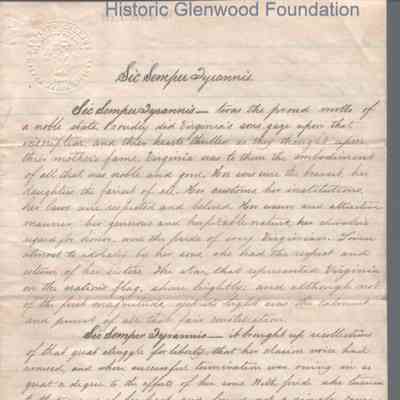 Historic Glenwood Foundation
Sic Semper Tyrannis
Sic Semper Tyrannis — twas the proud motto of
a noble state. Proudly did Virginia's sons gaze upon that
inscription, and their hearts thrilled as they thought upon
their mother's fame. Virginia was to them the embodiment
of all that was noble and good. Her sons were the bravest, her
daughters the fairest of all. Her customs, her institutions,
her laws were respected and beloved. Her warm and attractive
manner, her generous and hospitable nature, her
regard for honor, were the pride of every Virginian.
almost to adoration by her sons, she had the respect and
esteem of her sisters. The star that represented Virginia
on the nation's flag, shone brightly, and although not
of the first magnitude, yet its light was the
and purest of all that fair constellation.
Sic Semper Tyrannis — it brought up recollections
of that great struggle for liberty that her voice had
and whose successful termination was owing in so
great a degree to the efforts of her sons. With pride she